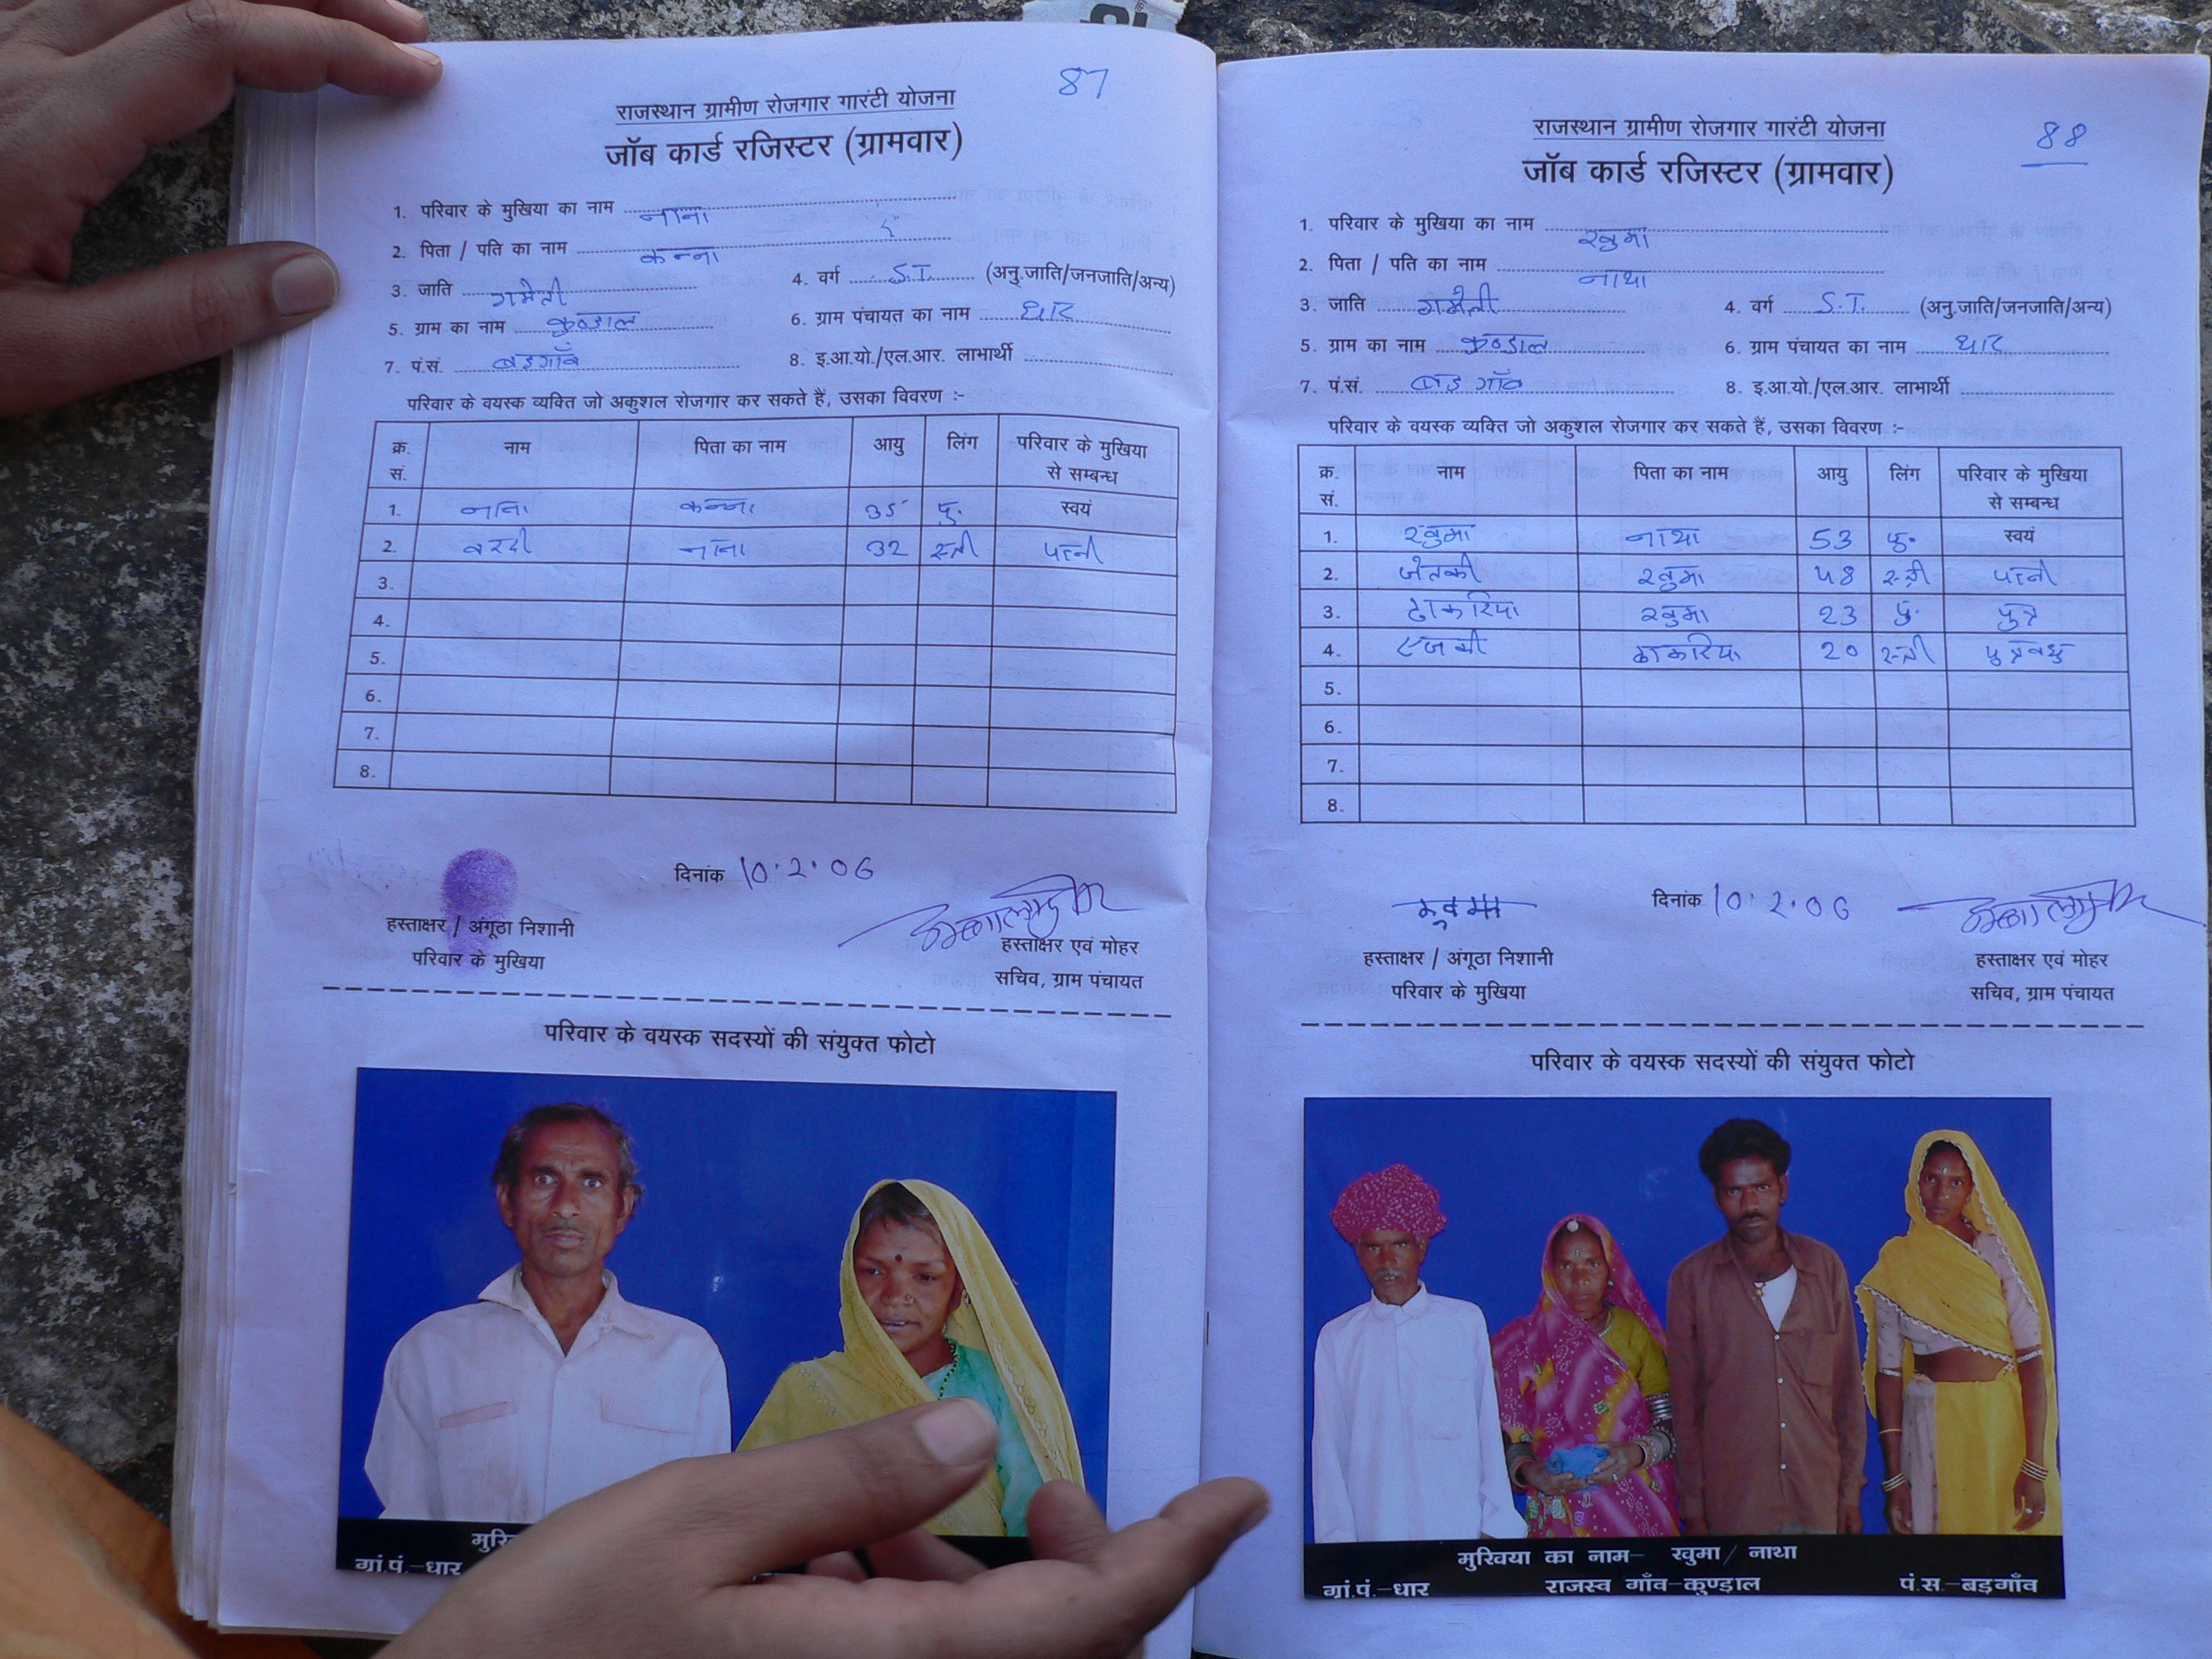 87
राजस्थान ग्रामीण रोजगार गारंटी योजना
जॉब कार्ड रजिस्टर (ग्रामवार)
1. परिवार के मुखिया का नाम नाना
2. पिता / पति का नाम कन्ना
3. जाति गमेती 4. वर्ग S.T. (अनु.जाति/जनजाति/अन्य)
5. ग्राम का नाम कुण्डाल 6. ग्राम पंचायत का नाम धार
7. पं.सं. बड़गाँव 8. इ.आ.यो./एल.आर. लाभार्थी
परिवार के वयस्क व्यक्ति जो अकुशल रोजगार कर सकते हैं, उसका विवरण :-
क्र. सं. नाम पिता का नाम आयु लिंग परिवार के मुखिया से सम्बन्ध
1. नाना कन्ना 35 पु. स्वयं
2. वरदी नाना 32 स्त्री पत्नी
3.
4.
5.
6.
7.
8.
दिनांक 10.2.06
हस्ताक्षर / अंगूठा निशानी
परिवार के मुखिया
हस्ताक्षर एवं मोहर
सचिव, ग्राम पंचायत
परिवार के वयस्क सदस्यों की संयुक्त फोटो
गां.पं.-धार
88
राजस्थान ग्रामीण रोजगार गारंटी योजना
जॉब कार्ड रजिस्टर (ग्रामवार)
1. परिवार के मुखिया का नाम खुमा
2. पिता / पति का नाम नाथा
3. जाति गमेती 4. वर्ग S.T. (अनु.जाति/जनजाति/अन्य)
5. ग्राम का नाम कुण्डाल 6. ग्राम पंचायत का नाम धार
7. पं.सं. बड़गाँव 8. इ.आ.यो./एल.आर. लाभार्थी
परिवार के वयस्क व्यक्ति जो अकुशल रोजगार कर सकते हैं, उसका विवरण :-
क्र. सं. नाम पिता का नाम आयु लिंग परिवार के मुखिया से सम्बन्ध
1. खुमा नाथा 53 पु. स्वयं
2. खुमा 48 स्त्री पत्नी
3. खुमा 23 पु. पुत्र
4. 20 स्त्री पुत्रवधु
5.
6.
7.
8.
दिनांक 10.2.06
हस्ताक्षर / अंगूठा निशानी
परिवार के मुखिया
हस्ताक्षर एवं मोहर
सचिव, ग्राम पंचायत
परिवार के वयस्क सदस्यों की संयुक्त फोटो
मुखिया का नाम- खुमा / नाथा
गां.पं.-धार राजस्व गाँव-कुण्डाल पं.स.-बड़गाँव